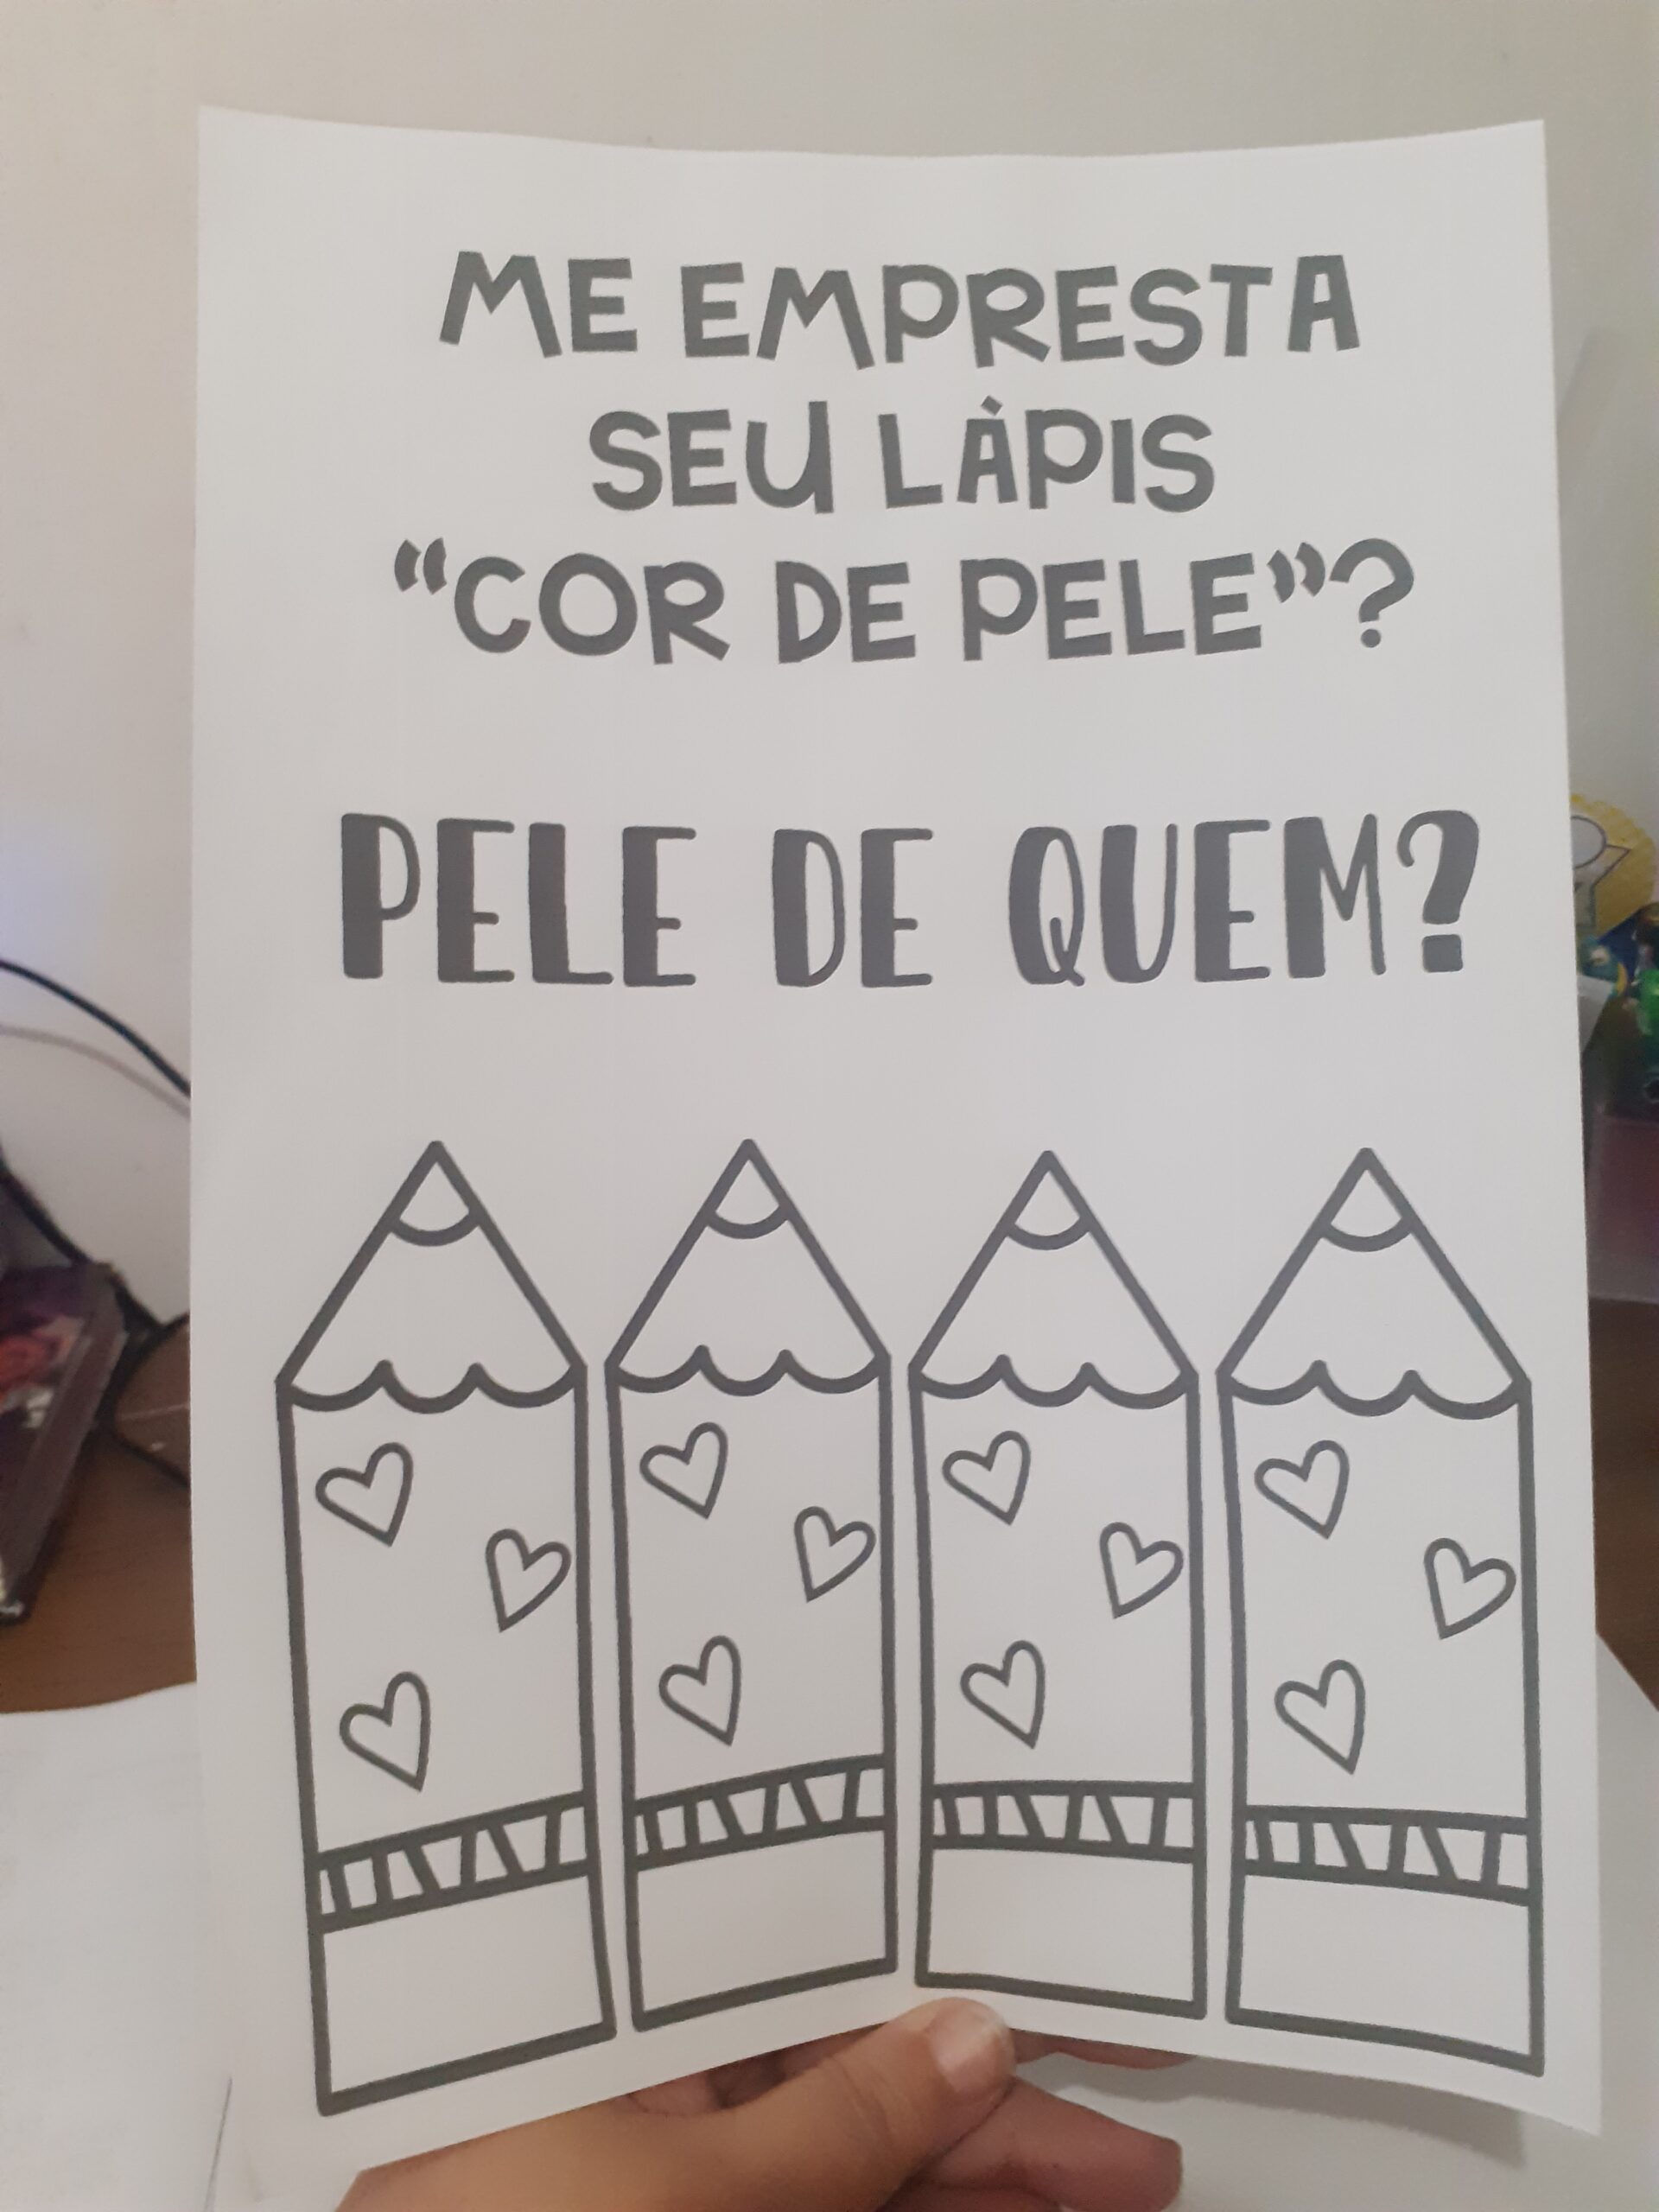 ME EMPRESTA
SEU LÁPIS
“COR DE PELE”?
PELE DE QUEM?